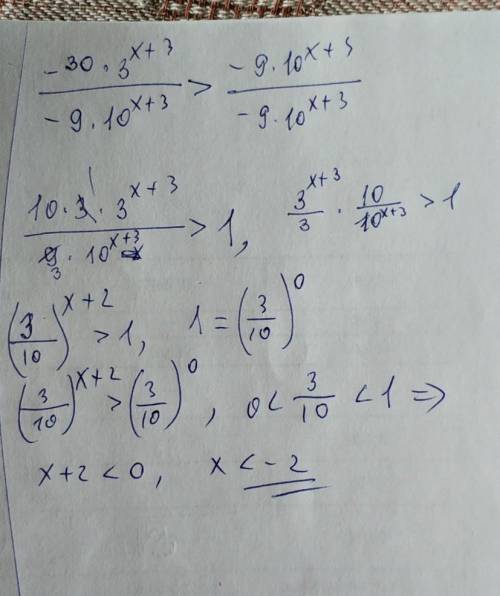 -30 · 3^(x+3) / -9 · 10^(x+3) > -9 · 10^(x+3) / -9 · 10^(x+3)
10 · 3 · 3^(x+3) / 9 · 10^(x+3) > 1, 3^(x+3)/3 · 10/10^(x+3) > 1
(3/10)^(x+2) > 1, 1 = (3/10)^0
(3/10)^(x+2) > (3/10)^0, 0 < 3/10 < 1 ⇒
x+2 < 0, x < -2